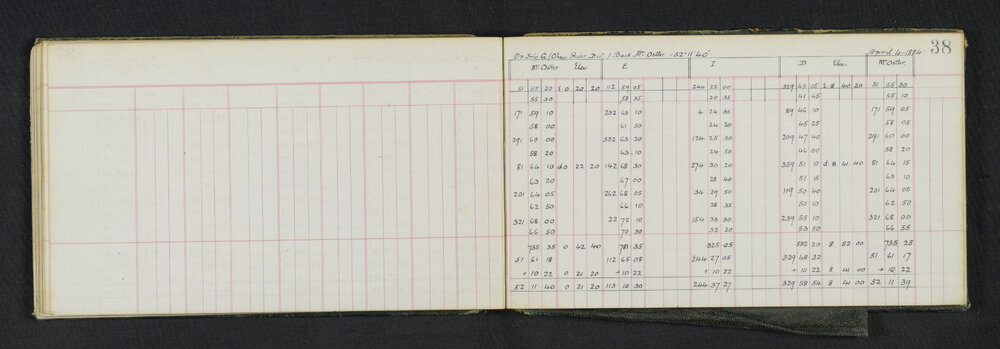 38
On Trig G. ( River Dist) / Back Mt Ostler - 52° 11' 40" April 4 - 1884
Mt Ostler Elev. E I D Elev. Mt Ostler
51 55 20 0 20 20 112 59 05 244 22 00 329 43 05 8 40 20 51 55 30
55 30 58 35 20 35 41 45 55 10
171 59 10 232 63 10 4 24 35 89 46 10 171 59 05
58 00 61 50 24 20 45 25 58 05
291 60 00 352 63 20 124 25 30 209 47 40 291 60 00
58 20 63 10 24 50 46 00 58 20
81 64 10 d 0 22 20 142 68 30 274 30 20 359 51 10 d 8 41 40 81 64 15
63 20 67 00 28 40 51 15 63 10
201 64 05 262 68 05 34 29 50 119 50 40 201 64 05
62 50 66 10 28 35 50 10 62 50
321 68 00 22 72 10 154 33 30 239 55 10 321 68 00
66 50 70 30 32 20 53 50 66 55
735 35 0 42 40 781 35 325 05 582 20 8 52 00 735 25
51 61 18 112 65 08 244 27 05 329 48 32 51 61 17
+ 10 22 0 21 20 + 10 22 + 10 22 + 10 22 8 41 00 + 10 22
52 11 40 0 21 20 113 15 30 244 37 27 329 58 54 8 41 00 52 11 39